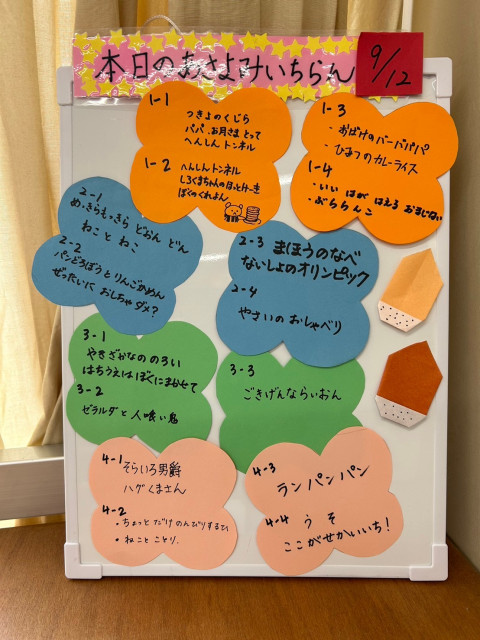 本日のあさよみいちらん 9/12
1-1
つきよのくじら
パパ、お月さまとって
へんしんトンネル
1-2 へんしんトンネル
しろくまちゃんのほっとけーき
ぼくのくれよん
1-3
・おばけのバーバパパ
・ひみつのカレーライス
1-4
・いいはがはえるおまじない
・ぶららんこ
2-1
めっきらもっきら どおん どん
ねことねこ
2-2
パンどろぼうとりんごかめん
ぜったいに おしちゃダメ?
2-3 まほうのなべ
ないしょのオリンピック
2-4
やさいのおしゃべり
3-1
やきざかなののろい
はちうえはぼくにまかせて
3-2
ゼラルダと人喰い鬼
3-3
ごきげんならいおん
4-1 そらいろ男爵
ハグくまさん
4-2
・ちょっとだけのんびりするひ
・ねことことり.
4-3
ランパンパン
4-4 うそ
ここがせかいいち!